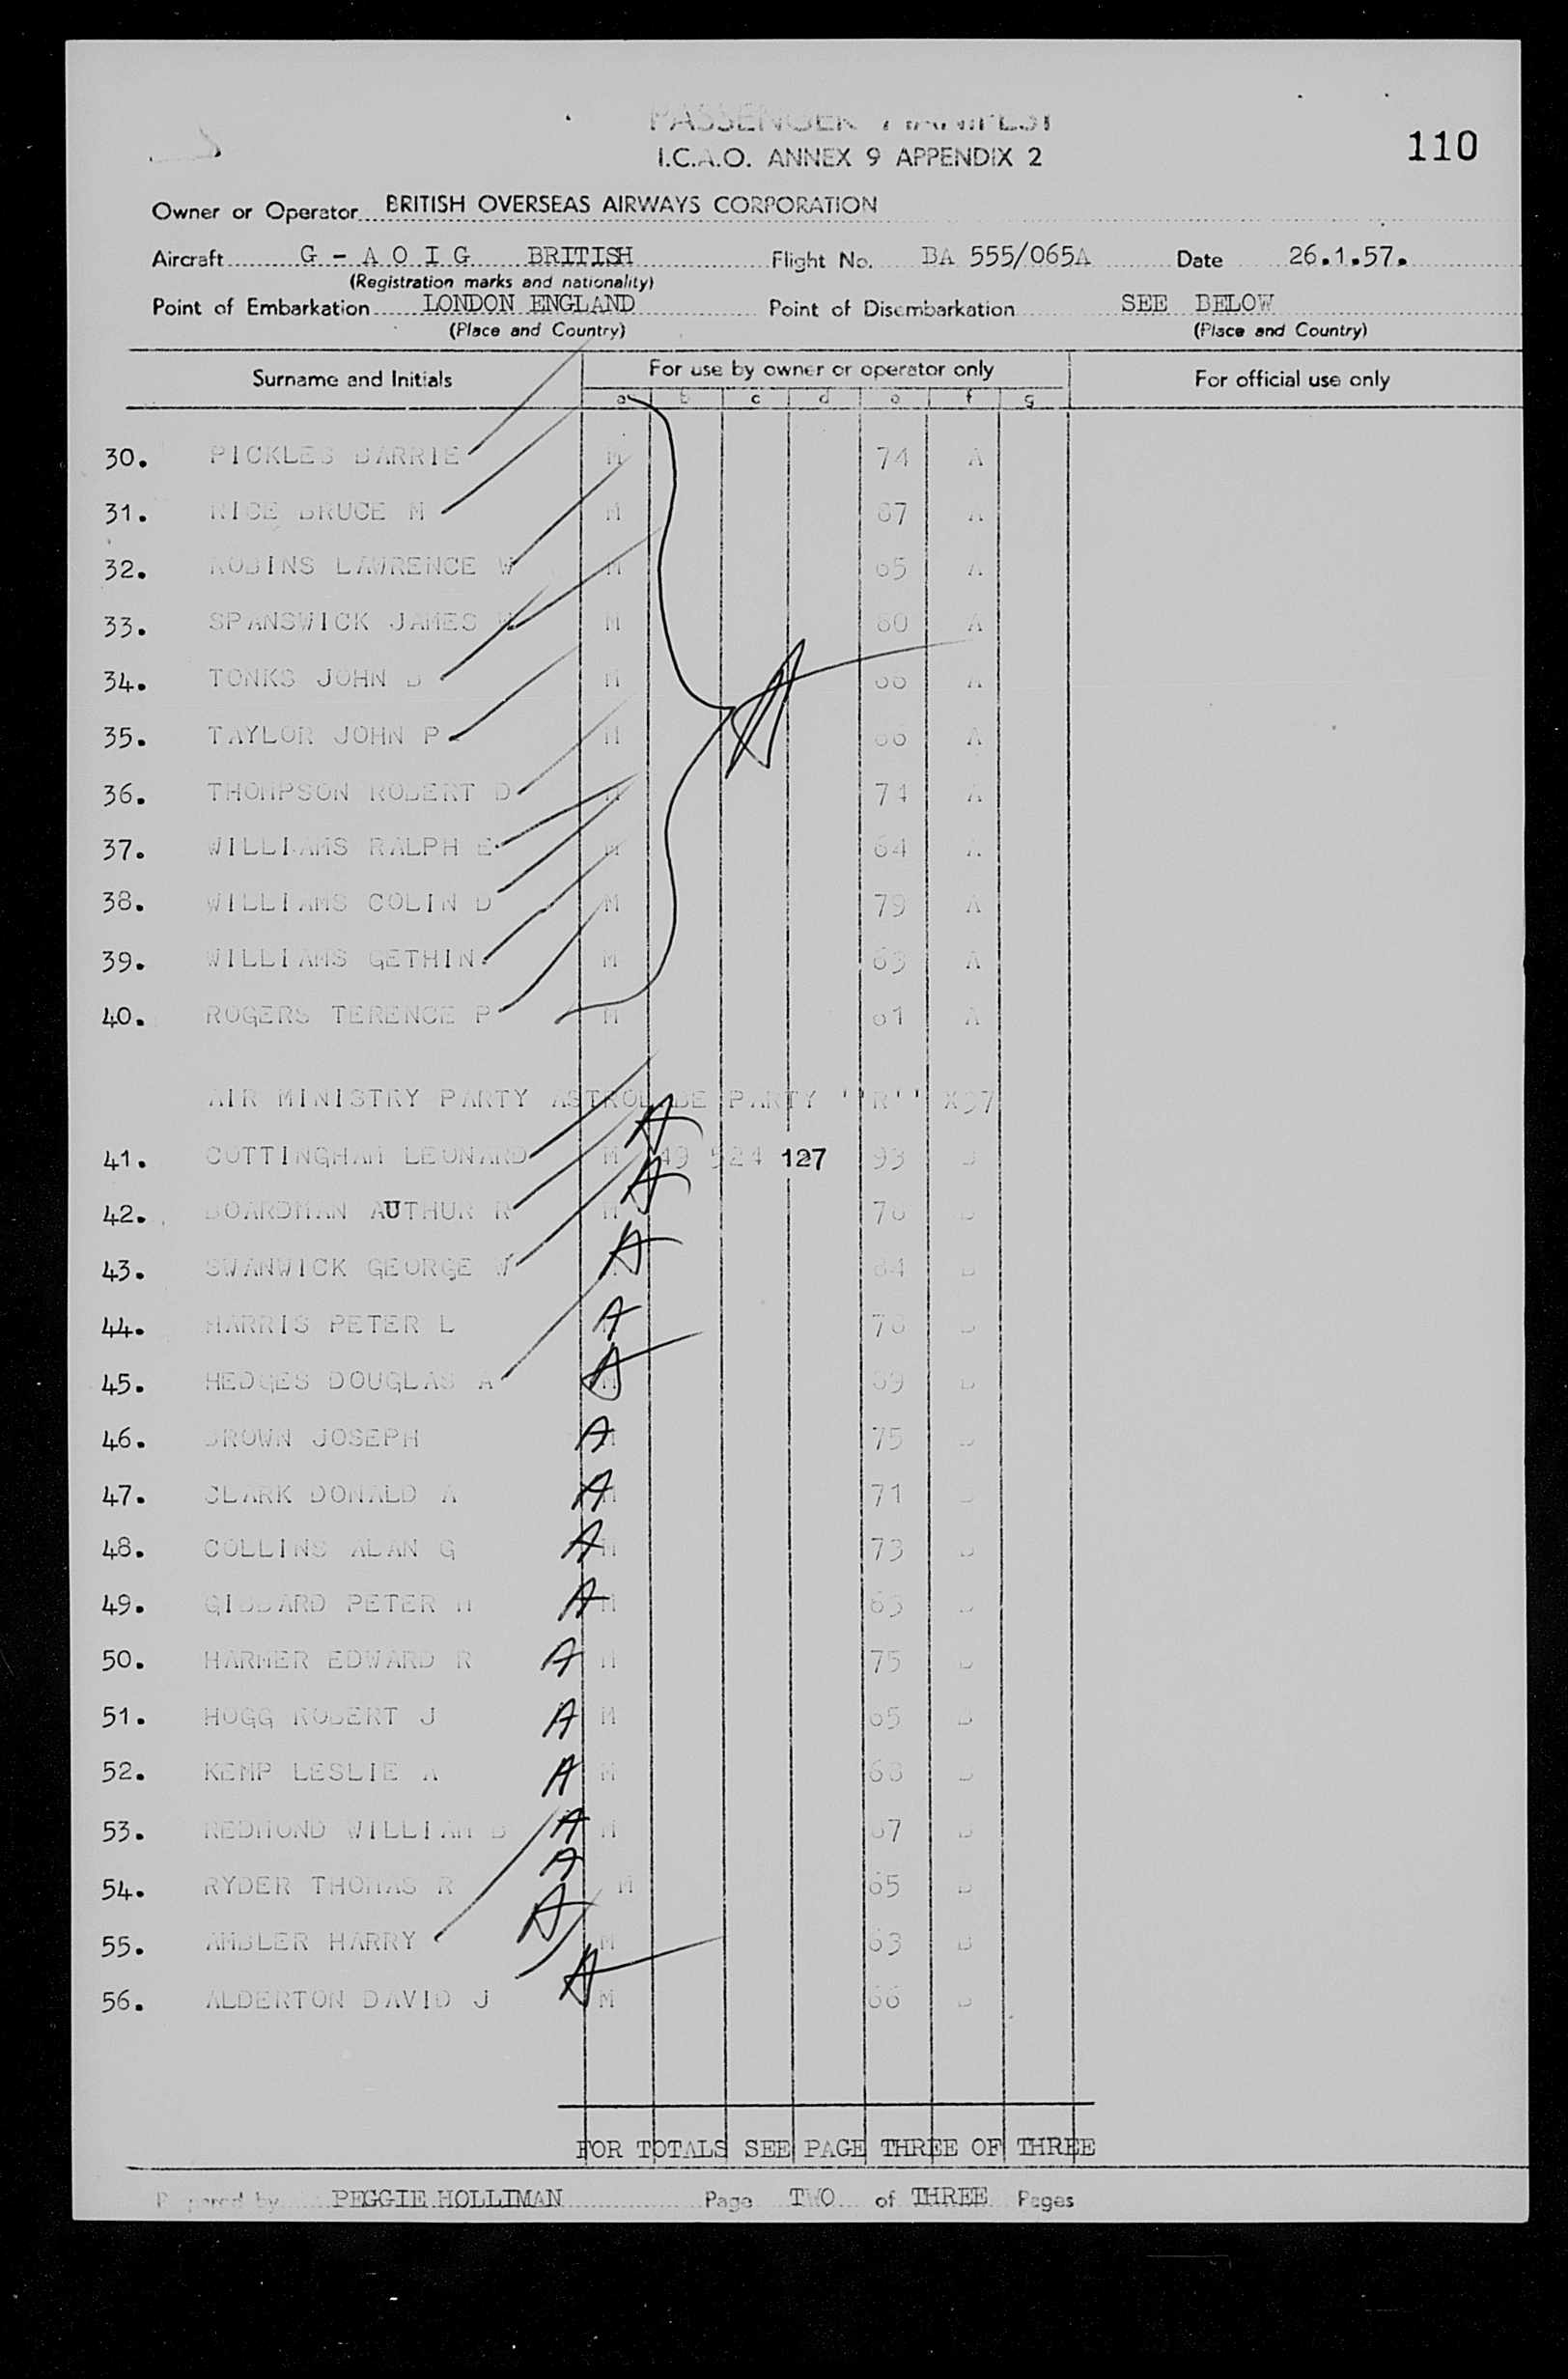 PASSENGER MANIFEST
I.C.A.O. ANNEX 9 APPENDIX 2
110
Owner or Operator BRITISH OVERSEAS AIRWAYS CORPORATION
Aircraft G - A O I G BRITISH Flight No. BA 555/065A Date 26.1.57.
(Registration marks and nationality)
Point of Embarkation LONDON ENGLAND Point of Disembarkation SEE BELOW
(Place and Country) (Place and Country)
Surname and Initials For use by owner or operator only For official use only
a b c d e f g
30. PICKLES BARRIE M 74 A
31. RICE BRUCE M M 67 A
32. ROBINS LAWRENCE W M 65 A
33. SPANSWICK JAMES M 60 A
34. TONKS JOHN B M 66 A
35. TAYLOR JOHN P M 66 A
36. THOMPSON ROBERT D M 74 A
37. WILLIAMS RALPH E M 64 A
38. WILLIAMS COLIN D M 79 A
39. WILLIAMS GETHIN M 63 A
40. ROGERS TERENCE P M 61 A
A
AIR MINISTRY PARTY ASTROLABE PARTY ''R'' X97
41. COTTINGHAM LEONARD M A 49 524 127 93 B
42. BOARDMAN AUTHUR R M A B
43. SWANWICK GEORGE W A 84 B
44. HARRIS PETER L A B
45. HEDGES DOUGLAS A M A B
46. BROWN JOSEPH A M 75 B
47. CLARK DONALD A A M 71 B
48. COLLINS ALAN G A M 73 B
49. GIBBARD PETER H A M B
50. HARMER EDWARD R A M 75 B
51. HOGG ROBERT J A M 65 B
52. KEMP LESLIE A A M 68 B
53. REDMOND WILLIAM B A M 67 B
54. RYDER THOMAS R A M 65 B
55. AMBLER HARRY A M 63 B
56. ALDERTON DAVID J A M 66 B
FOR TOTALS SEE PAGE THREE OF THREE
Prepared by PEGGIE HOLLIMAN Page TWO of THREE Pages